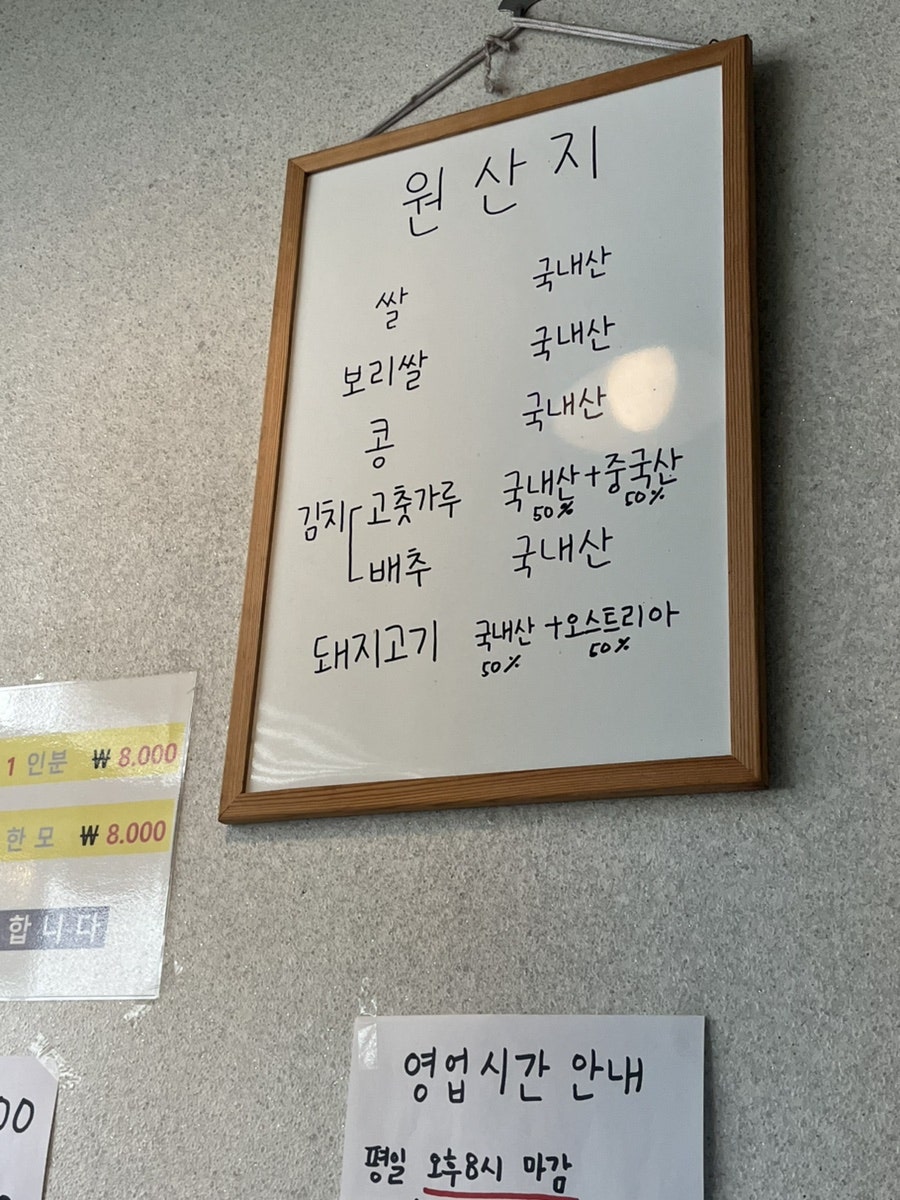 원산지
쌀 국내산
보리쌀 국내산
콩 국내산
김치 고춧가루 국내산+중국산
50% 50%
배추 국내산
돼지고기 국내산+오스트리아
50% 50%
1 인분 ₩ 8.000
한 모 ₩ 8.000
합니다
00
영업시간 안내
평일 오후8시 마감